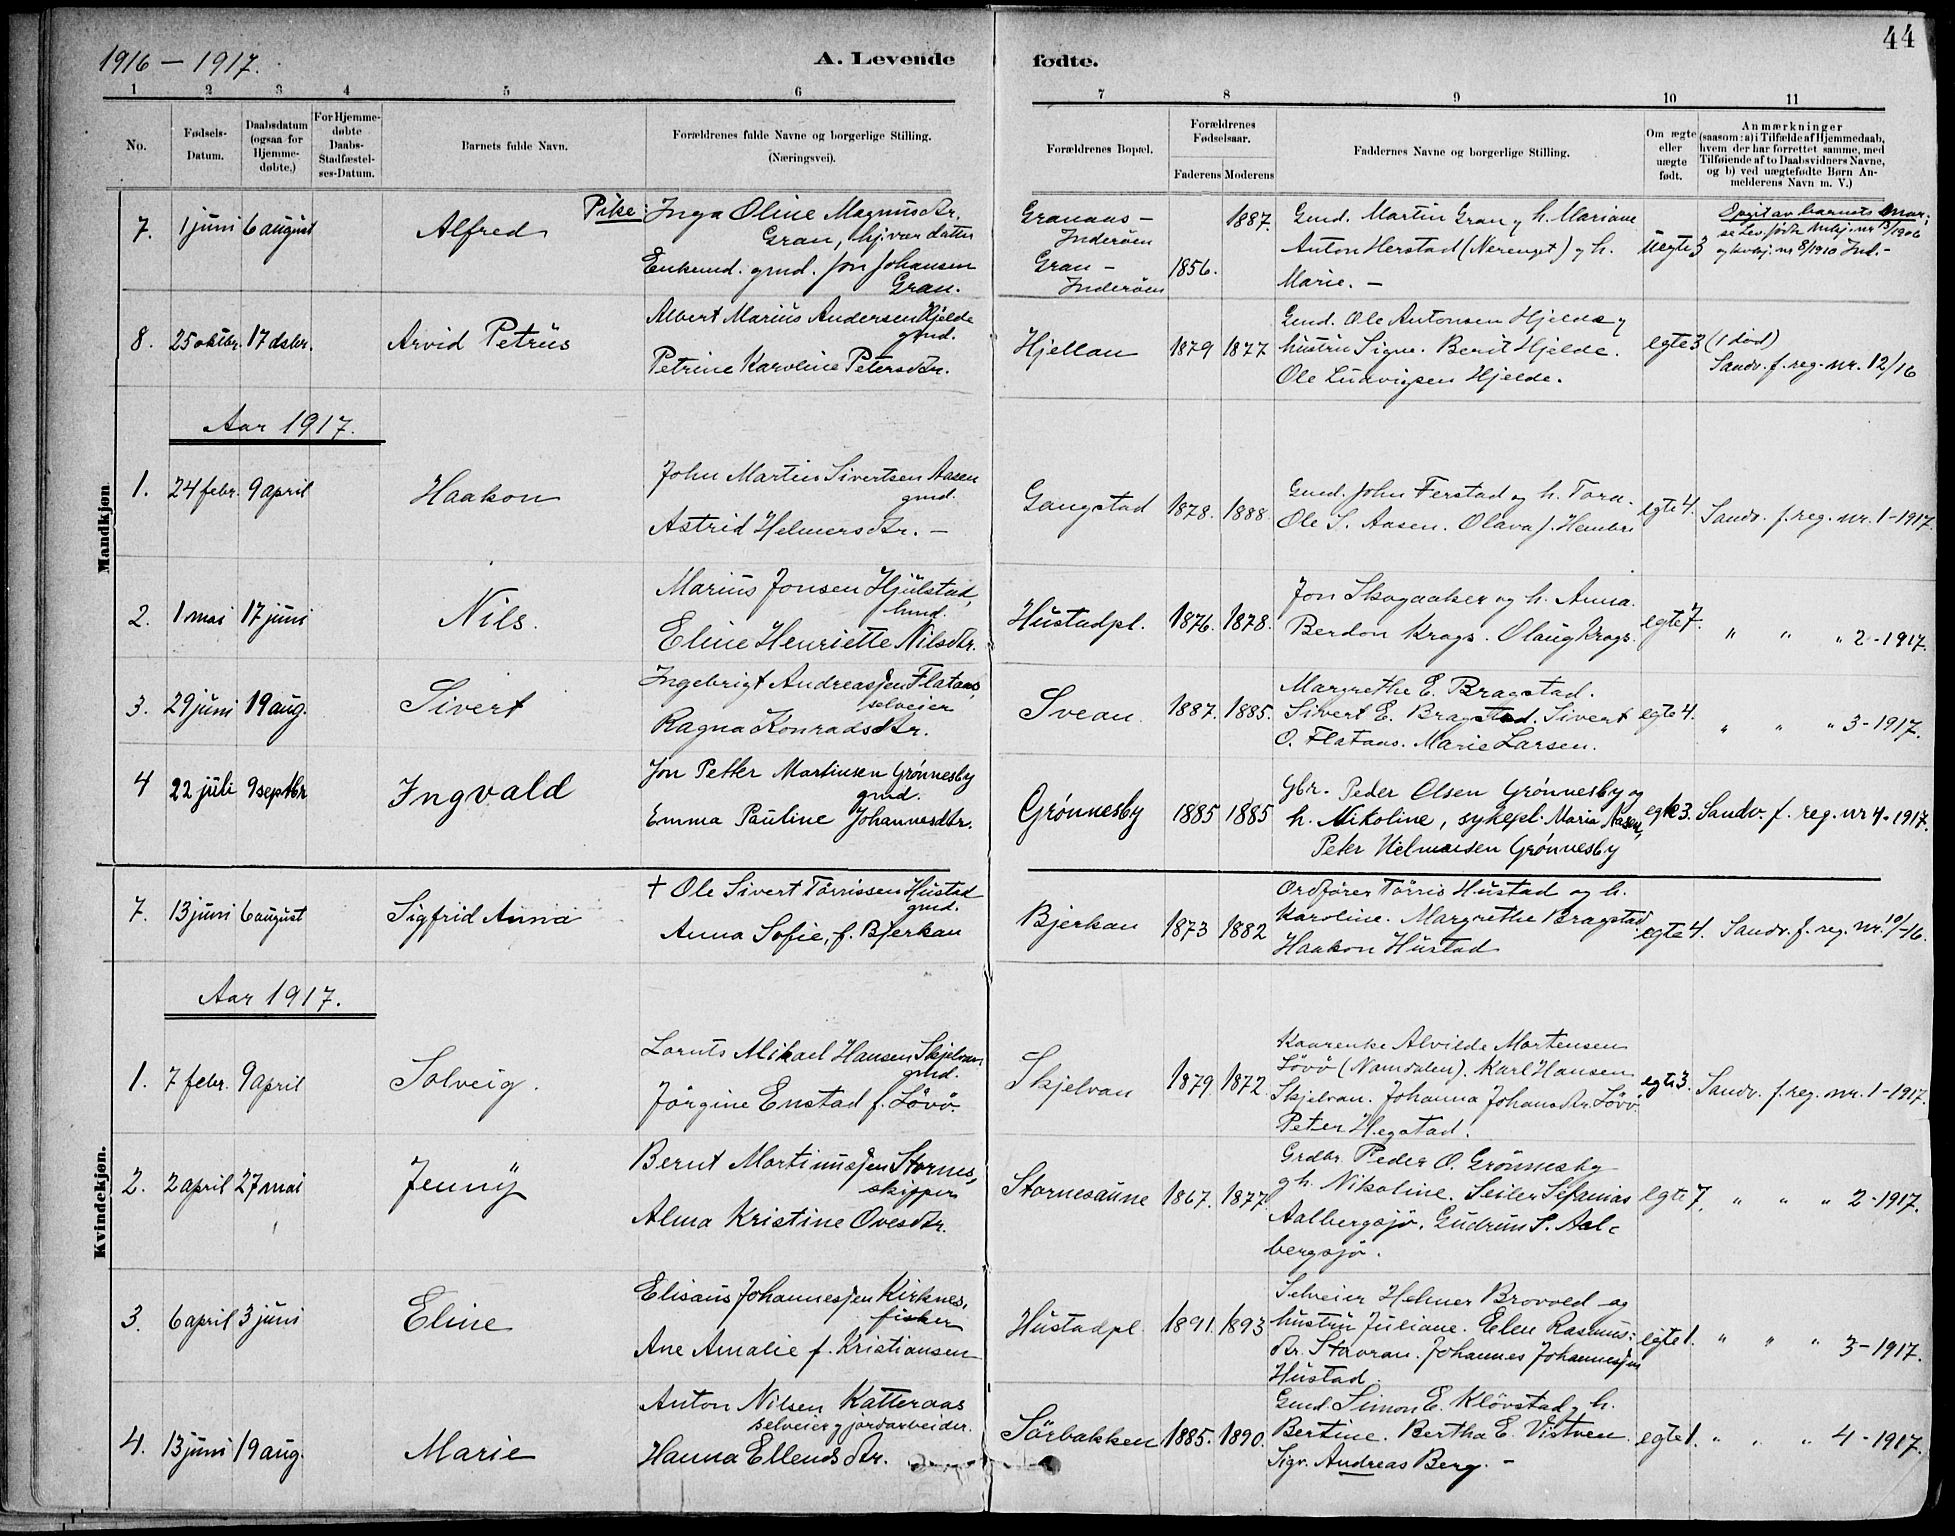 44
1916 – 1917.
A. Levende fødte.
1 2 3 4 5 6 7 8 9 10 11
No.
Fødsels-Datum.
Daabsdatum (ogsaa for Hjemme-døbte.)
For Hjemme-døbte Daabs-Stadfæstel-ses-Datum.
Barnets fulde Navn.
Forældrenes fulde Navne og borgerlige Stilling.
(Næringsvei).
Forældrenes Bopæl.
Forældrenes Fødselsaar.
Faderens Moderens
Faddernes Navne og borgerlige Stilling.
Om ægte eller uægte født.
Anmærkninger
(saasom: a) i Tilfælde af Hjemmedaab, hvem der har forrettet samme, med Tilføiende af to Daabsvidners Navne, og b) ved uægtefødte Børn An-melderens Navn m. V.)
Mandkjøn
7. 1 juni 6 august Alfred
Pike: Inga Oline Magnusdtr.
Gran, hj.vær. datter
Enkemd. gmd. Jon Johansen
Gran.
Granaas –
Inderøen
Gran –
Inderøen
1856. 1887.
Gmd. Martin Gran og h. Mariane
Anton Herstad (Nerenget) og h.
Marie. –
Uegte 3
8. 25 oktbr. 17 dsbr. Arvid Petrus
Albert Marius Andersen Hjelde
gmd.
Petrine Karoline Petersdtr.
Hjellan 1879 1877
Gmd. Ole Antonsen Hjelde og
hustru Signe. Berit Hjelde.
Ole Ludvigsen Hjelde.
egte 3 (1 död)
Sandv. f. reg. nr. 12/16
Aar 1917.
1. 24 febr. 9 april Haakon
John Martin Sivertsen Aasen
gmd.
Astrid Helmersdtr. –
Gangstad 1878. 1888
Gmd. John Ferstad og h. Tora.
Ole S. Aasen. Olava J. Hembre
egte 4. Sandv. f. reg. nr. 1-1917.
2. 1 mai 17 juni Nils.
Marius Jonsen Hjulstad,
hmd.
Eline Henriette Nilsdtr.
Hustadpl. 1876. 1878.
Jon Skogaaker og h. Anna.
Berdon Krogs. Olaug Krogs.
egte 7. " " " 2-1917.
3. 29 juni 19 aug. Sivert
Ingebrigt Andreassen Flataas,
selveier
Ragna Konradsdtr.
Svean. 1887. 1885.
Margrethe E. Bragstad.
Sivert E. Bragstad. Sivert
O. Flataas. Marie Larsen.
egte 4. " " " 3-1917.
4 22 juli 9 septbr Ingvald
Jon Petter Martinsen Grønnesby
gmd.
Emma Pauline Johannesdtr.
Grønnesby 1885 1885
Gbr. Peder Olsen Grønnesby og
h. Nikoline, sykepl. Maria Aasen,
Peter Helmersen Grønnesby
egte 3. Sandv. f. reg. nr 4-1917.
Kvindekjøn.
7. 13 juni 6 august Sigfrid Anna
† Ole Sivert Törrissen Hustad
gmd.
Anna Sofie, f. Bjerkan
Bjerkan 1873 1882
Ordfører Törris Hustad og h.
Karoline. Margrethe Bragstad.
Haakon Hustad
egte 4. Sandv. f. reg. nr. 10/-16.
Aar 1917.
1. 7 febr. 9 april Solveig.
Lornts Mikael Hansen Skjelvan
gmd.
Jörgine Enstad f. Lövö.
Skjelvan 1879. 1872.
Kaarenke Alvilde Mortensen
Lövö (Namdalen). Karl Hansen
Skjelvan. Johanna Johansdtr. Lövö.
Peter Hegstad.
egte 3. Sandv. f. reg. nr. 1-1917.
2. 2 april 27 mai Jenny
Bernt Martinussen Stornes,
skipper
Alma Kristine Ovesdtr.
Stornesaune 1867. 1877.
Grdbr. Peder O. Grönnesby
og h. Nikoline. Seiler Sefanias
Aalbergsjö. Gudrun S. Aal-
bergsjö.
egte 7. " " " 2-1917.
3. 6 april 3 juni Eline
Elisæus Johannessen Kirknes,
fisker
Ane Amalie f. Kristiansen
Hustadpl. 1891. 1893
Selveier Helmer Brovold og
hustru Juliane. Elen Rasmus-
dtr. Stavran. Johannes Johannessen
Hustad.
egte 1. " " " 3-1917.
4. 13 juni 19 aug. Marie
Anton Nilsen Katteraas
selveier og jordarbeider.
Hanna Ellendsdtr.
Sörbakken 1885. 1890.
Gmd. Simon E. Klövstad og h.
Bertine. Bertha E. Vistven.
Sigv. Andreas Berg. –
egte 1. " " " 4-1917.